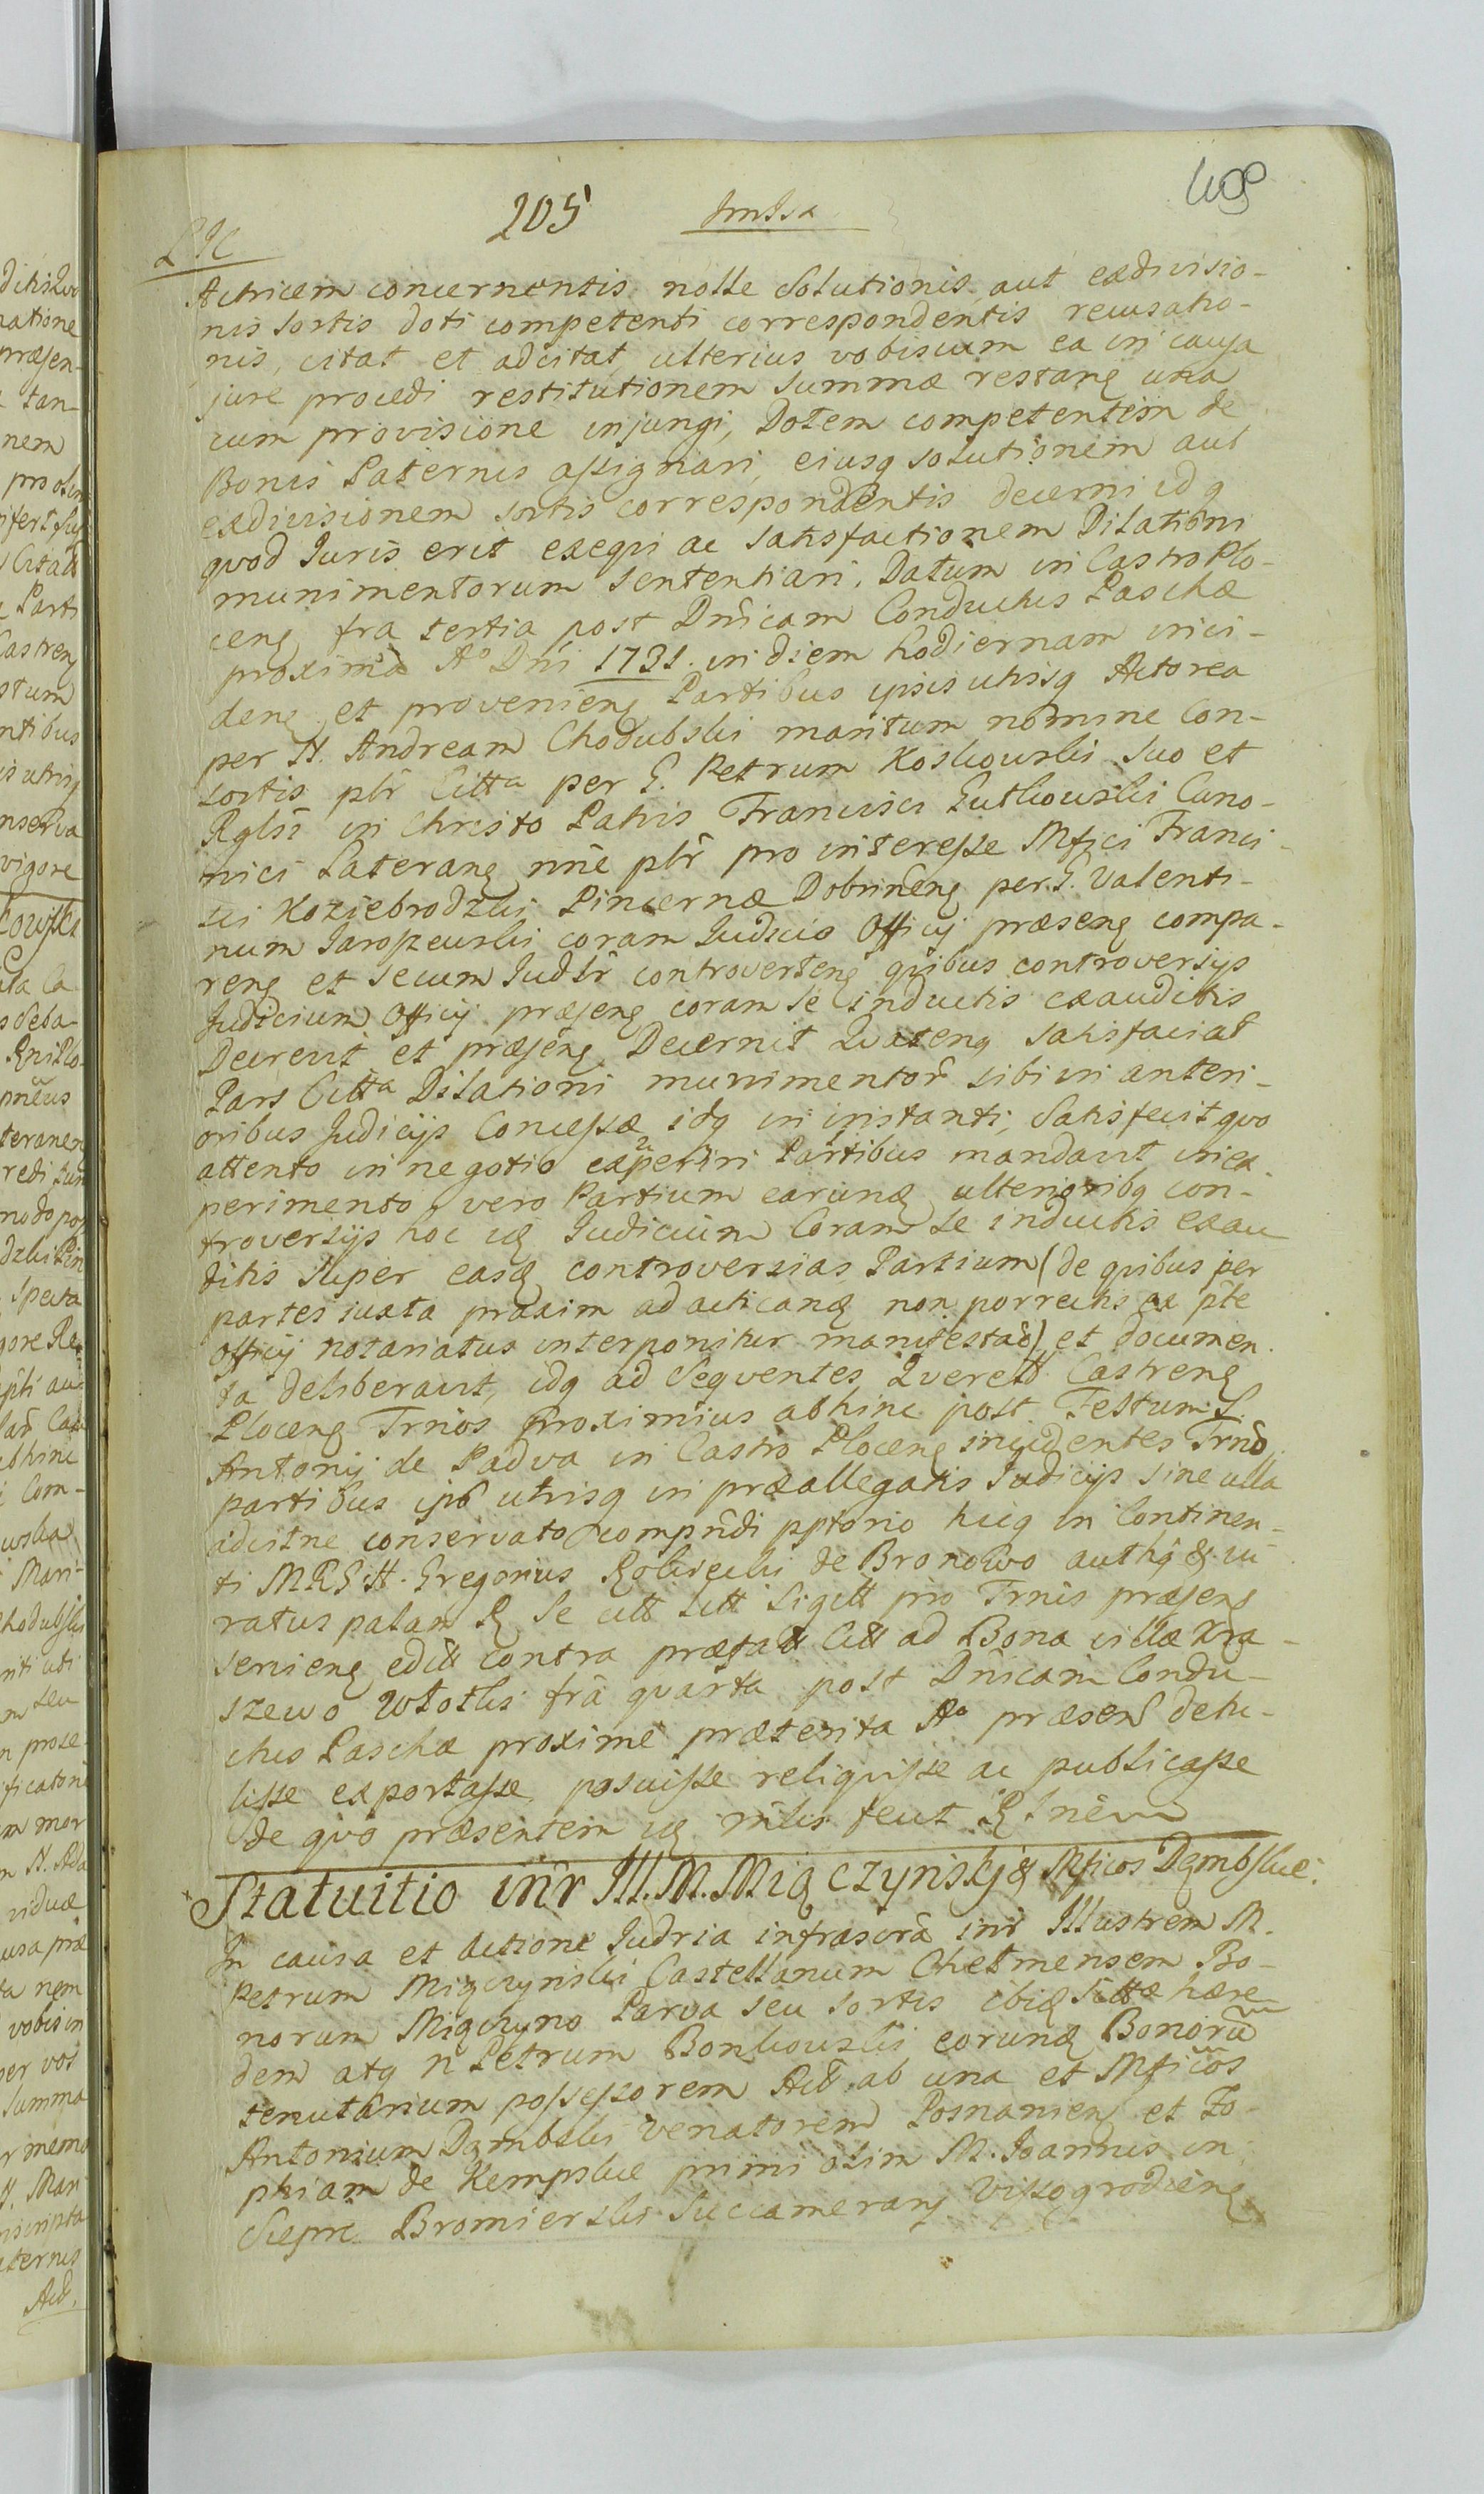 409
205
Actricem concernentis nolle solutionis aut exdivisio-
nis sortis doti competenti correspondentis recusatio-
nis, citat et adcitat, ulterius vobiscum ea in causa
jure procedi restitutionem Summæ restanę una
cum provisione injungi, Dotem competentem de
Bonis Paternis assignari, eiusq solutionem aut
exdivisionem sortis correspondentis decerni idq
quod Juris erit exeqvi ac satisfactionem Dilationi
munimentorum sententiari. Datum in Castro Plo-
cenę fra tertia post Dnicam Conductus Paschæ
proxima Ao Dni 1731. in diem hodiernam inci-
denę et provenienę Partibus ipsis utrisq Actorea
per N. Andream Chodubski maritum nomine Con-
sortis plr Citta per G. Petrum Koskowski suo et
Rglsi in Christo Patris Francisci Gutkowski Cano-
nici Lateranę nne plr pro interesse Mfici Franci-
sci Koziebrodzki Pincernæ Dobrinenę per G. Valenti-
num Jaroszewski coram Judicio Officij præsenę compa-
renę et secum Judlr controvertenę qvibus controversijs
Judicium Officij præsenę coram se inductis exauditis
Decrevit et præsenę Decernit Qvatenq satisfaciat
Pars Citta Dilationi munimentor sibi in anteri-
oribus Judicijs Concessæ idq in instanti, Satisfecit qvo
attento in negotio experiri Partibus mandavit, in ex-
perimento vero Partium earunę ulterioribq con-
troversijs hoc idę Judicium Coram se inductis exau
ditis super easdę controversias Partium (de qvibus per
partes iuxta praxim ad acticandę non porrectis ex pte
Officij notariatus interponitur manifestao) et documen-
ta deliberavit, idq ad Seqventes Qverell Castrenę
Plocenę Trnos proximius abhinc post Festum S.
Antonij de Padva in Castro Plocenę incidentes Trno
partibus ipis utrisq in præallegatis Judicijs sine ulla
adcitne conservato comprndi pptorio hucq in Continen-
ti MRS H. Gregorius de Bronowo
ratus palam se citt litt Sigill pro Trnis præsenę
servienę edit contra præfatt Citt ad Bona villæ Kra-
szewo Wtotki fra qvarta post Dnicam Condu-
ctus Paschæ proxime præterita Ao præsen detu-
lisse exportasse, posuisse reliqvisse ac publicasse
de qvo præsentem idę mlis fecit Rlnem
Statuitio intr Ill. M. Miączynskj & Mficos Dąmbskie.
In causa et actione Judria infrascra intr Illustrem M.
Petrum Miączynski Castellanum Chelmensem Bo-
norum Miączyno Parva seu sortis ibidę sittæ hære-
dem atq N Petrum Bonkowski eorundę Bonorum
tenutarium possessorem Act. ab una et Mficos
Antonium Dąmbski Venatorem Posnanienę et Zo-
phiam de Kempskie primi olim M. Joannis in
Siepre Bromierski Succamerarij Vissogrodienę